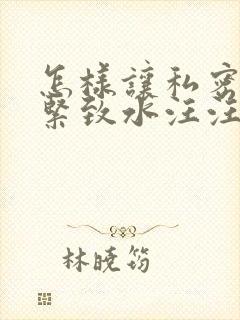 怎樣讓私密
緊致水汪汪
林曉筠